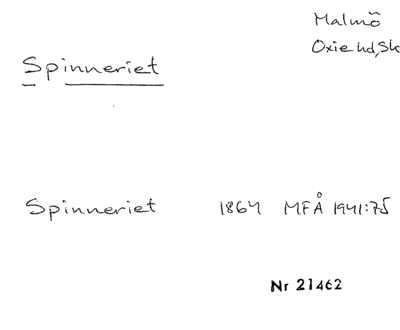 Malmö
Oxie hd, Sk
Spinneriet
Spinneriet 1864 MFÅ 1941:75
Nr 21462